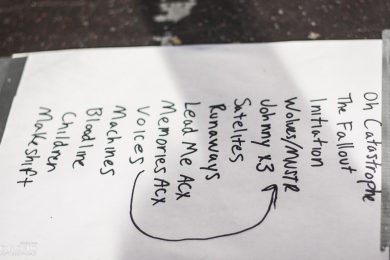 Oh Catastrophe
The Fallout
Initiation
Wolves/MWSTR
Johnny x3
Satelites
Runaways
Lead Me ACX
Memories ACX
Voices
Machines
Bloodline
Children
Makeshift